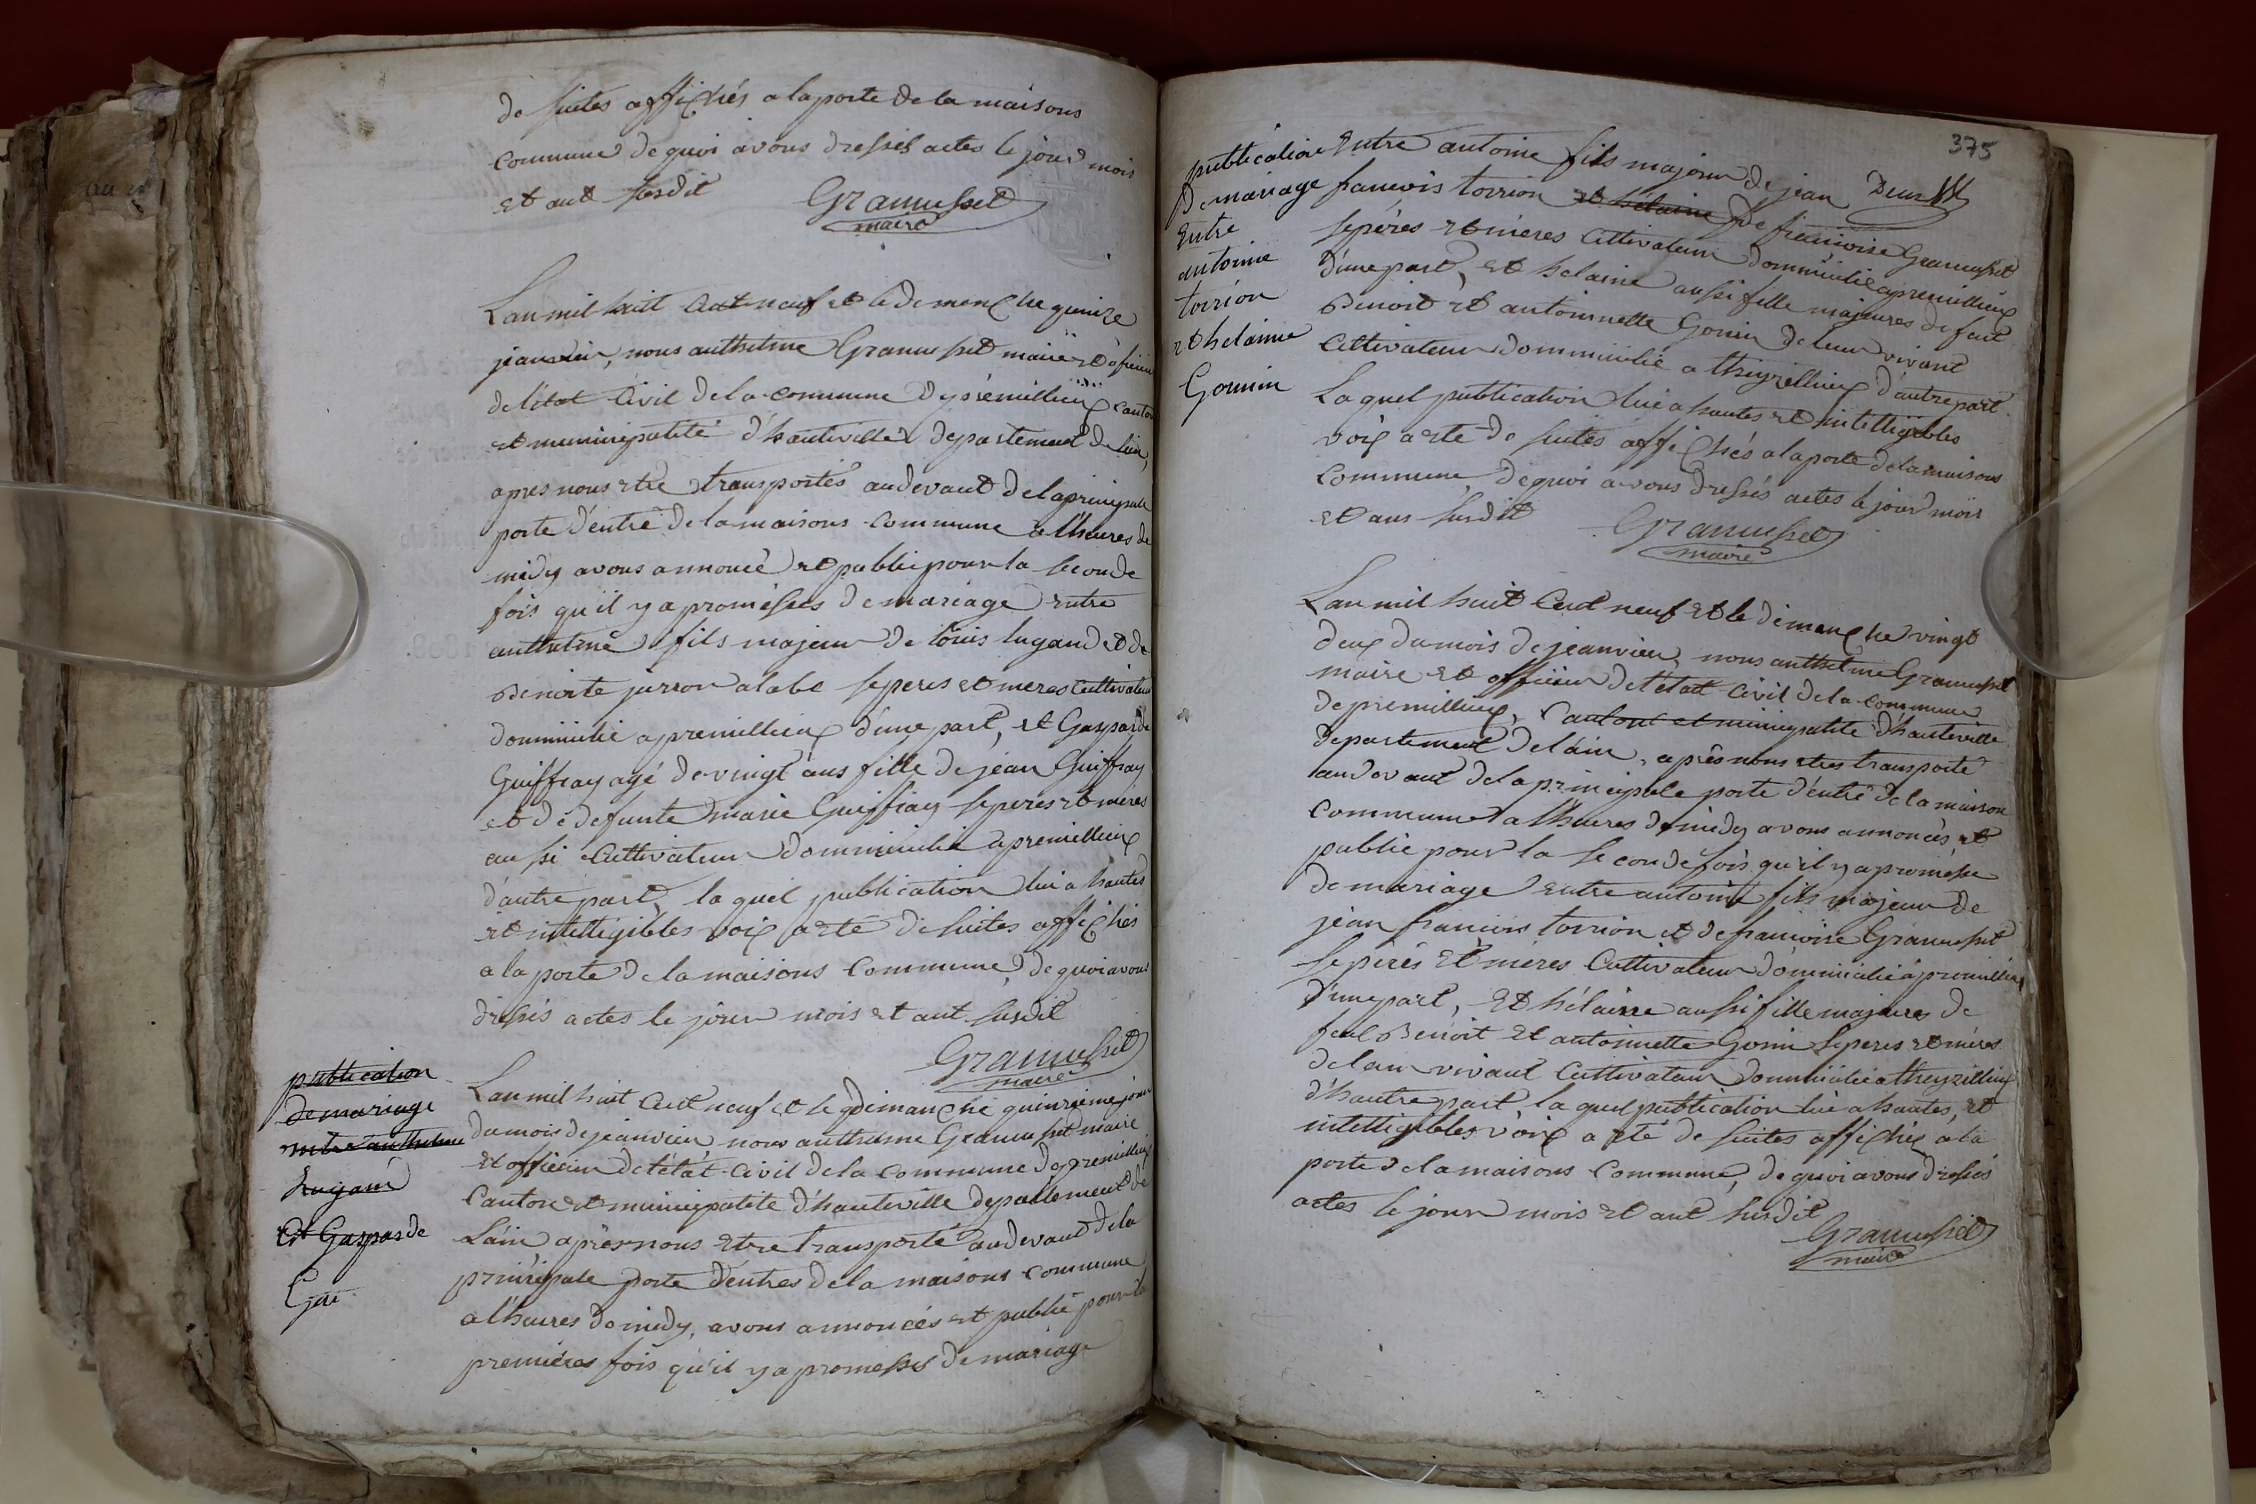 de suites affichés a la porte de la maisons
commune de quoi avons dressés actes le jour mois
et ant susdit
Gramusset
maire
L'an mil huit cent neuf et le dimanche quinze
jeanvier, nous anthelme Gramusset maire et oficier
de l'état Civil de la commune de prémillieu canton
et municipalité d'hauteville departement de l'ain,
apres nous etre transportés au devant de la principale
porte d'entré de la maisons commune a l'heures de
midy avons annoncé et publié pour la seconde
fois qu'il y a promesses de mariage entre
anthelme fils majeur de loüis lugand et de
Benoite jurron alabe ses peres et meres Cultivateur
dommicilié a premillieu d'une part, et Gasparde
Guiffray agé de vingt ans fille de jean Guiffray
et de defunte marie Guiffray ses peres et meres
aussi Cultivateur dommicilié a premillieu
d'autre part, la quel publication lue a hautes
et intelligibles voix a eté de suites affichés
a la porte de la maisons Commune, de quoi avons
dressés actes le jour mois et ant susdit
Gramusset
maire
publication
de mariage
entre anthelme
Lugand
et Gasparde
Gui
L'an mil huit Cent neuf et le dimanche quinzieme jour
du mois de jeanvier nous anthelme Gramusset maire
et officier de l'état Civil de la commune de premillieu
Canton et municipalite d'hauteville departement de
L'ain, aprés nous etre transporté au devant de la
principale porte d'entres de la maisons commune
a l'heures de midy, avons annoncés et publié pour la
premiéres fois qu'il y a promesses de mariage
375
publication
de mariage
Entre
antoine
torrion
et helaine
Gounin
Entre antoine fils majeur de jean
francois torrion et helaine de francoise Gramusset
ses péres et méres Cultivateur dommicilié a premillieu
d'une part, et helaine aussi fille majeures de feut
Benoit et antoinnette Gonin de leur vivant
Cultivateur dommicilié a theyzillieu d'autre part.
La quel publication lue a hautes et intelligibles
voix a eté de suites affichés a la porte de la maisons
Commune, de quoi avons dressés actes le jour mois
et ans susdit
Gramusset
maire
L'an mil huit Cent neuf et le dimanche vingt
deux du mois de jeanvier, nous anthelme Gramusset
maire et officier de l'état Civil de la commune
de premillieu, Canton et municipalite d'hauteville
departement de l'ain, aprés nous etres transporté
au devant de la principale porte d'éntré de la maison
commune a l'heures de midy avons annoncés et
publié pour la seconde fois qu'il y a promesse
de mariage entre antoine fils majeur de
jéan francois torrion et de francoise Gramusset
ses péres et méres Cultivateur dommicilié a premillieu
d'une part, Et hélaine aussi fille majeures de
feut Benoit et antoinette Gonin ses peres et méres
de leur vivant Cultivateur dommicilié a theyzillieu
d'hautre part la quel publication lue a hautes, et
intelligibles voix a eté de suites affichés a la
porte de la maisons Commune, de quoi avons dressés
actes le jour mois et ant susdit
Gramusset
maire